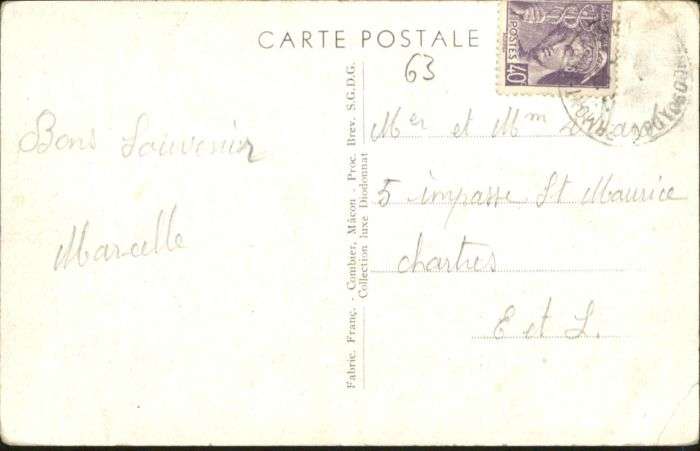 CARTE POSTALE
63
POSTES
40
Bons Souvenir
Marcelle
Fabric. Franç. - Combier, Mâcon - Proc. Brev. S.G.D.G.
Collection luxe Diodonnat
Mer et Mm
5 impasse St Maurice
Chartres
E et L.